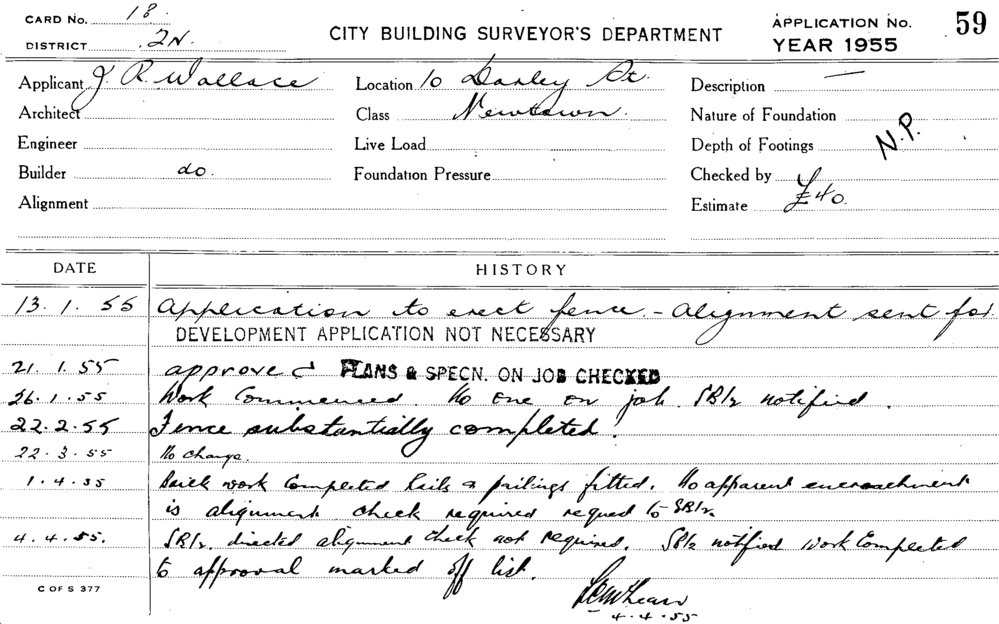 CARD No. 18
DISTRICT 2N.
CITY BUILDING SURVEYOR'S DEPARTMENT
APPLICATION No. 59
YEAR 1955
Applicant J. R. Wallace
Location 10 Darley St.
Description —
Architect
Class Newtown.
Nature of Foundation
Engineer
Live Load
Depth of Footings
N.P.
Builder do.
Foundation Pressure
Checked by
Alignment
Estimate £40.
DATE HISTORY
13. 1. 55 Application to erect fence. - Alignment sent for.
DEVELOPMENT APPLICATION NOT NECESSARY
21. 1. 55 approved PLANS & SPECN. ON JOB CHECKED
26. 1. 55 Work Commenced. No one on job. SR/2 notified.
22. 2. 55 Fence substantially completed.
22. 3. 55 No change.
1. 4. 55 Brick work Completed rails & pailings fitted. No apparent encroachment
is alignment check required to SR/2
4. 4. 55. SR/2 directed alignment check not required. SR/2 notified Work Completed
to approval marked off list.
4-4-55
C OF S 377